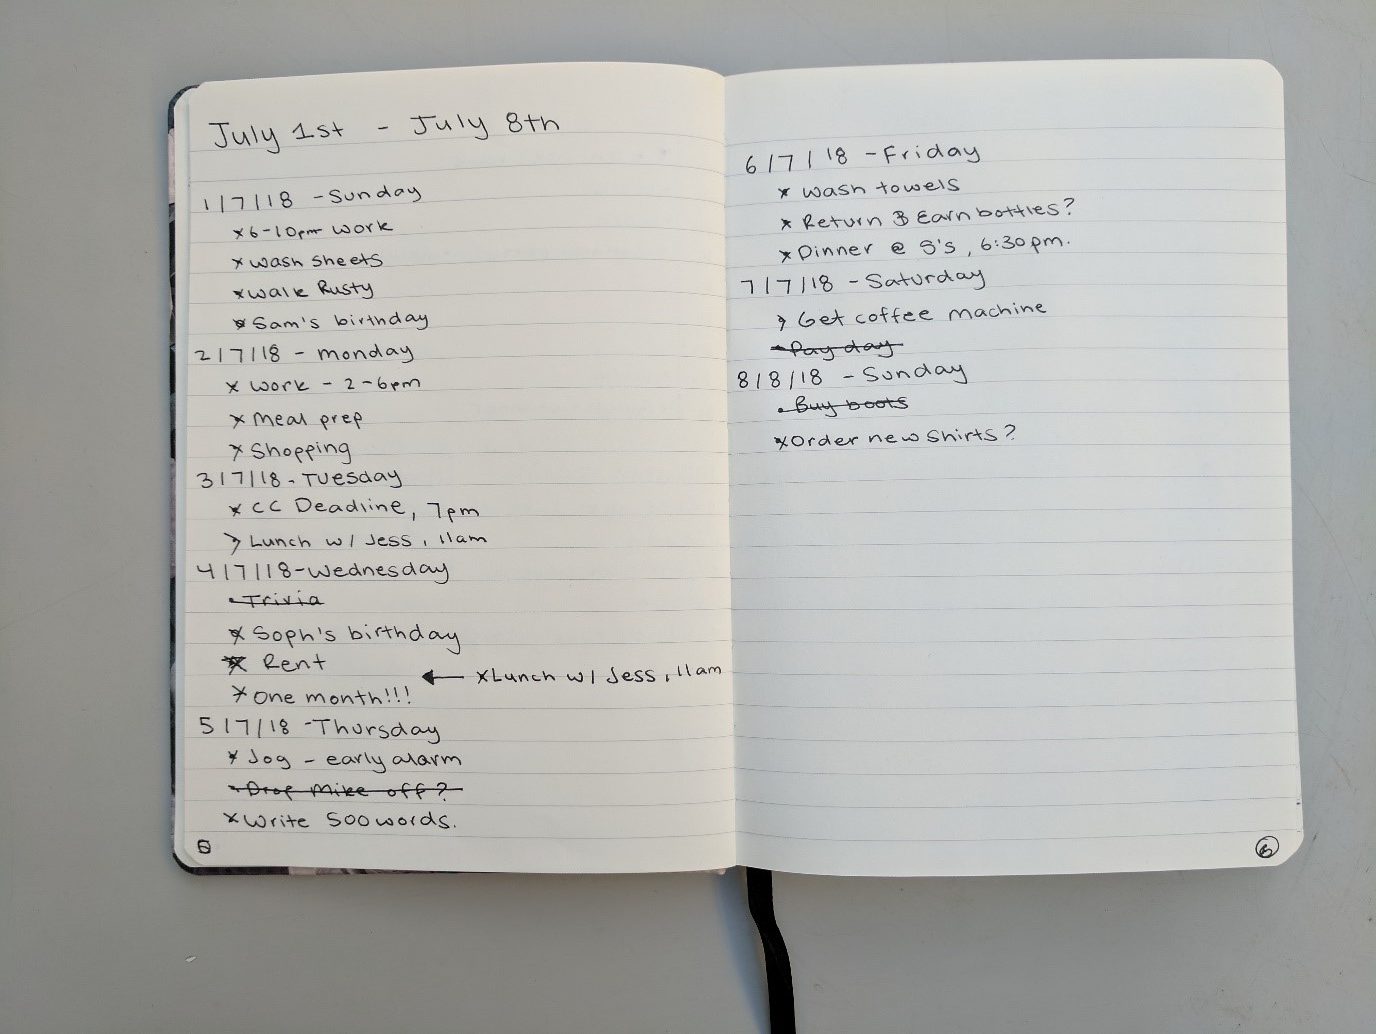 July 1st - July 8th
1/7/18 - Sunday
x 6-10pm work
x wash sheets
x walk Rusty
x Sam's birthday
2/7/18 - monday
x work - 2-6pm
x meal prep
x shopping
3/7/18 - Tuesday
x CC Deadline, 7pm
> Lunch w/ Jess, 11am
4/7/18 - Wednesday
• Trivia
x Soph's birthday
x Rent
← x Lunch w/ Jess, 11am
x One month!!!
5/7/18 - Thursday
x Jog - early alarm
• Drop Mike off?
x Write 500 words.
5
6/7/18 - Friday
x wash towels
x Return & Earn bottles?
x Dinner @ S's, 6:30pm.
7/7/18 - Saturday
> Get coffee machine
• Pay day
8/8/18 - Sunday
• Buy boots
x Order new shirts?
6